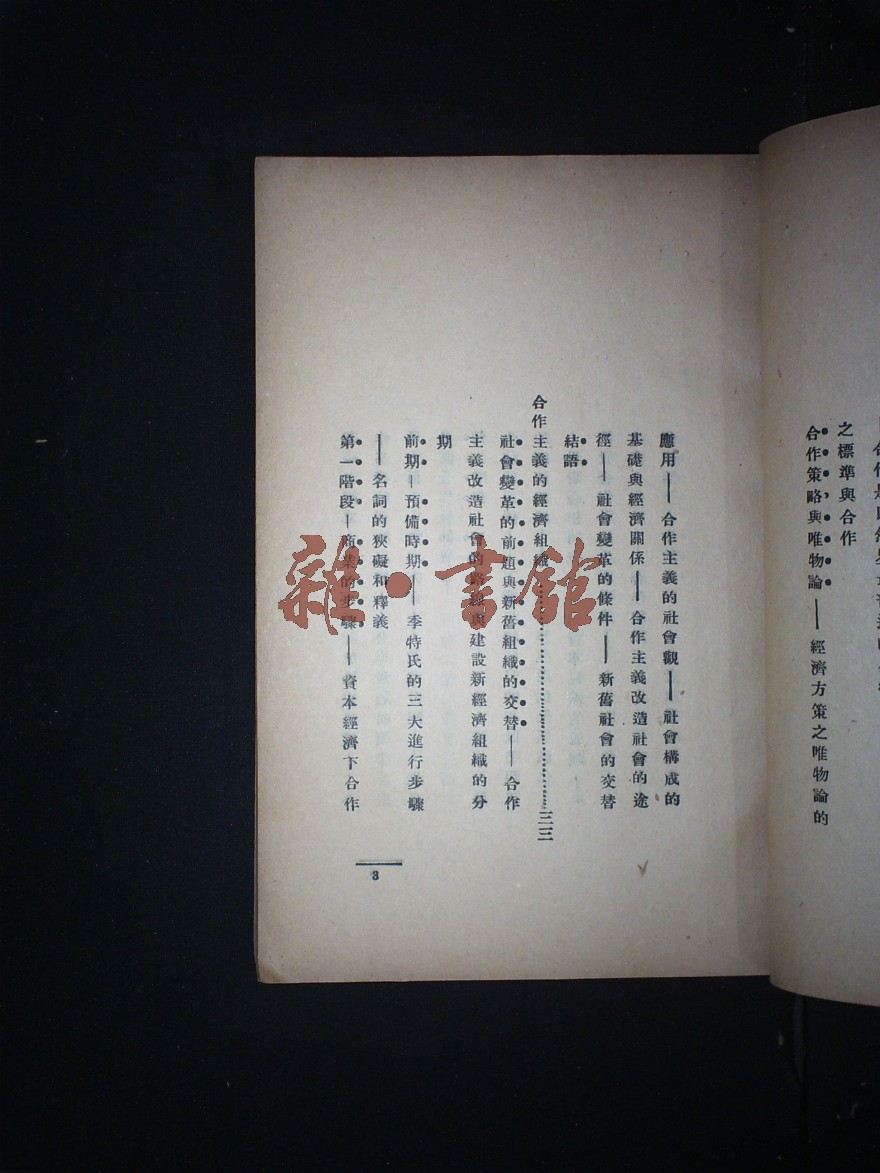 之標準與合作
合作策略與唯物論——經濟方策之唯物論的
應用——合作主義的社會觀——社會構成的
基礎與經濟關係——合作主義改造社會的途
徑——社會變革的條件——新舊社會的交替
結語
合作主義的經濟組織……三三
社會變革的前題與新舊組織的交替——合作
主義改造社會的路線與建設新經濟組織的分
期
前期—預備時期——季特氏的三大進行步驟
——名詞的狹礙和釋義
第一階段—商業的步驟——資本經濟下合作
3
雜·書館